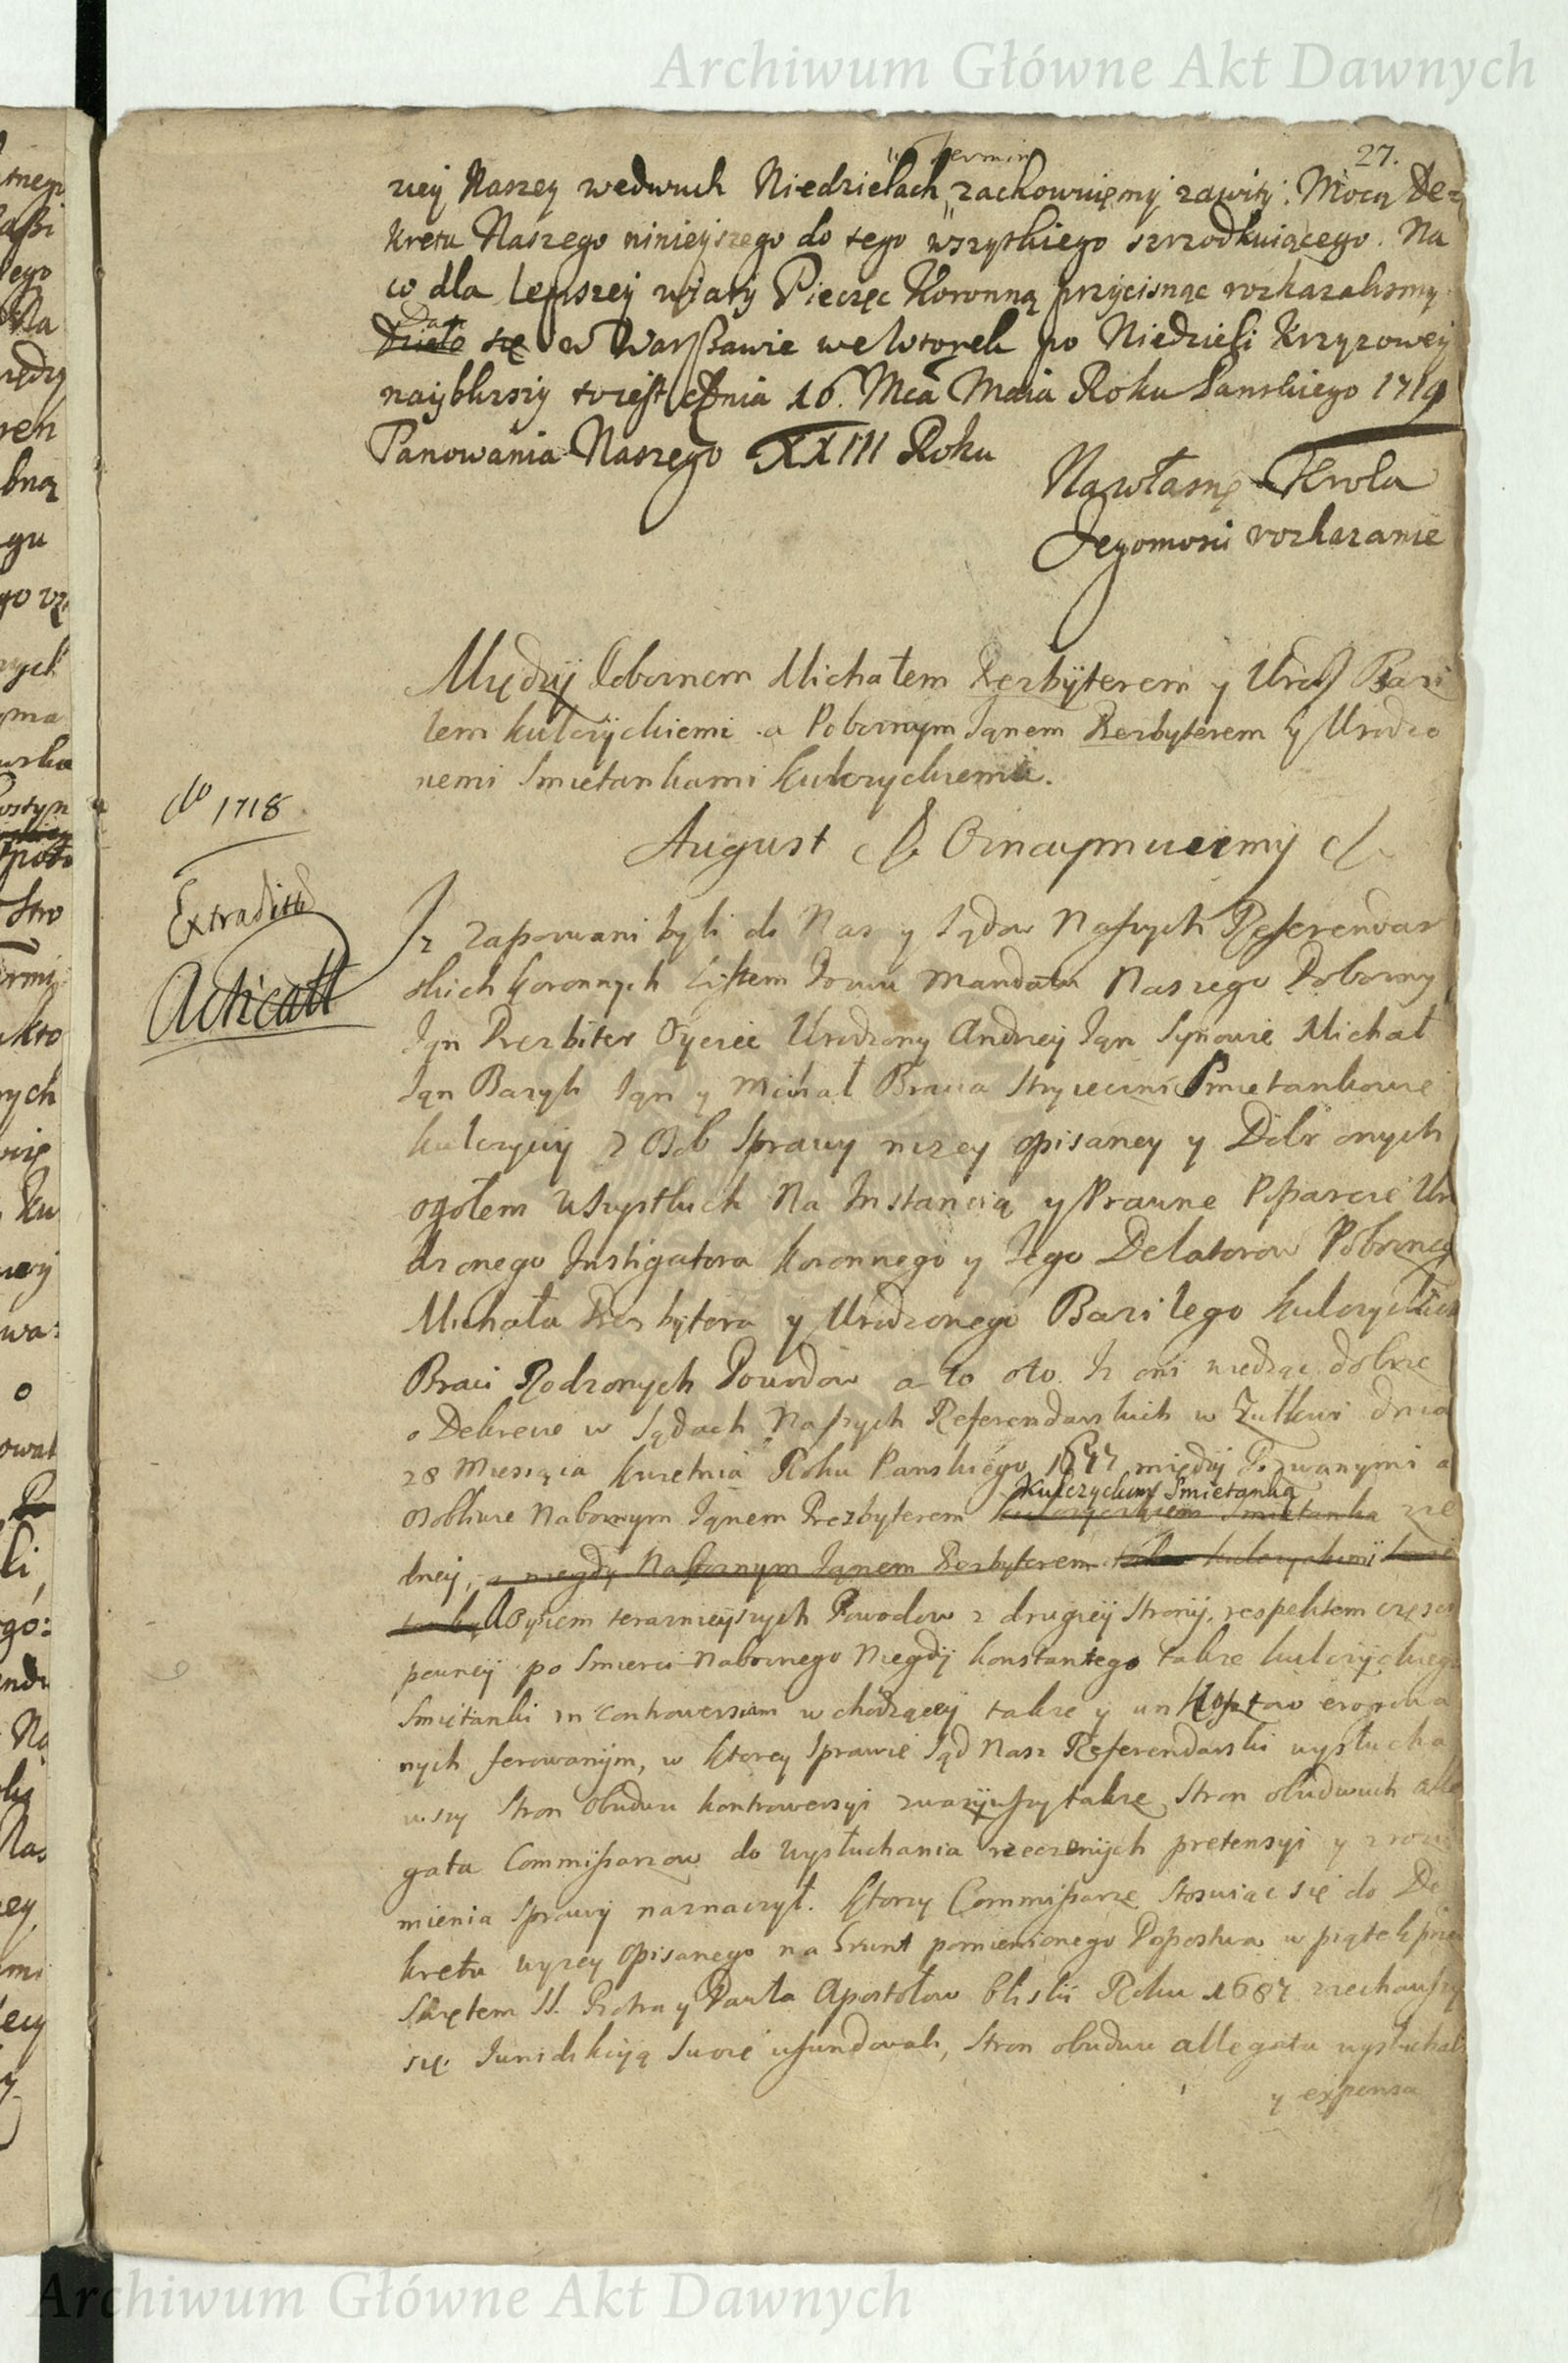 Archiwum Główne Akt Dawnych
27.
termin
ney Naszey wedwuch Niedzielach zachowuięmy zawity. Mocą De=
kretu Naszego ninieyszego do tego wszytkiego szrzodkuiącego. Na
co dla lepszey wiary Pieczęc Koronną przycisnąc rozkazalismy
Dan
Działo się w Warszawie we Wtorek po Niedzieli Krzyzowey
nayblizszy triest Dnia 16. Mca Maia Roku Panskiego 1719
Panowania Naszego XXIII Roku
Na własne Krola
Jegomosci rozkazanie
Między Pobornem Michałem Prezbÿterem y Urodz Bazi
lem kulczÿckiemi a Pobornym Janem Prezbyterem y Urodzo
nemi Smietankami kulczyckiemi.
do 1718
August & Oznaymuiemy &
Extraditt
Acticatt
Iz Zapozwani byli do Nas y Sądow Naszych Referendar
skich koronnych Listem Pozwu Mandatu Naszego Poborny
Jan Prezbiter Oyciec Urodzony Andrzey Jan Synowie Michał
Jan Bazyli Jan y Michał Bracia Stryieczni Smietankowie
kulczyccy z Osob Sprawy nizey opisaney y Dobr onych
ogołem wszystkich Na Instancią y Prawne Poparcie Uro
dzonego Instigatora koronnego y Jego Delatorow Pobornego
Michała Prezbytera y Urodzonego Bazilego kulczyckich
Braci Rodzonych Powodow a to oto Iz oni wiedząc dobrze
o Dekrecie w Sądach Naszych Referendarskich w Zułkwi dnia
28 Miesiąca kwietnia Roku Panskiego 1677 między Pozwanymi a
Kulczyckim Smietanką
osobliwie Nabornym Janem Prezbyterem kulczyckiem Smietanka zie
dney, a niegdy Nabornym Janem Prezbyterem także kulczyckimi
Oycem teraznieyszych Powodow z drugiey strony, respektem częsci
pewney po Smierci Nabornego Niegdÿ konstantego także kulczÿckiego
Smiętanki in Controversiam wchodzącey także y un kosztow erogowa
nych ferowanÿm, w ktorey Sprawie Sąd Nasz Referendarski wysłucha
wszy Stron Obudwu kontrowersyi zwazÿwszy także Stron obudwuch alle
gata Commissarzow do wysłuchania rzeczonych pretensyi y zrozu
mienia Sprawÿ naznaczył. Ktorzy Commissarze Stosuiąc się do De
kretu wyzey opisanego na Grunt pomienionego Popostwa w piątek przed
Swętem SS. Piotra y Pawła Apostołow bliski Roku 1687 ziechawszy
się Jurisdikcyą Swoię ufundowali, Stron obudwu allegata wysłuchali
y expensa
Archiwum Główne Akt Dawnych